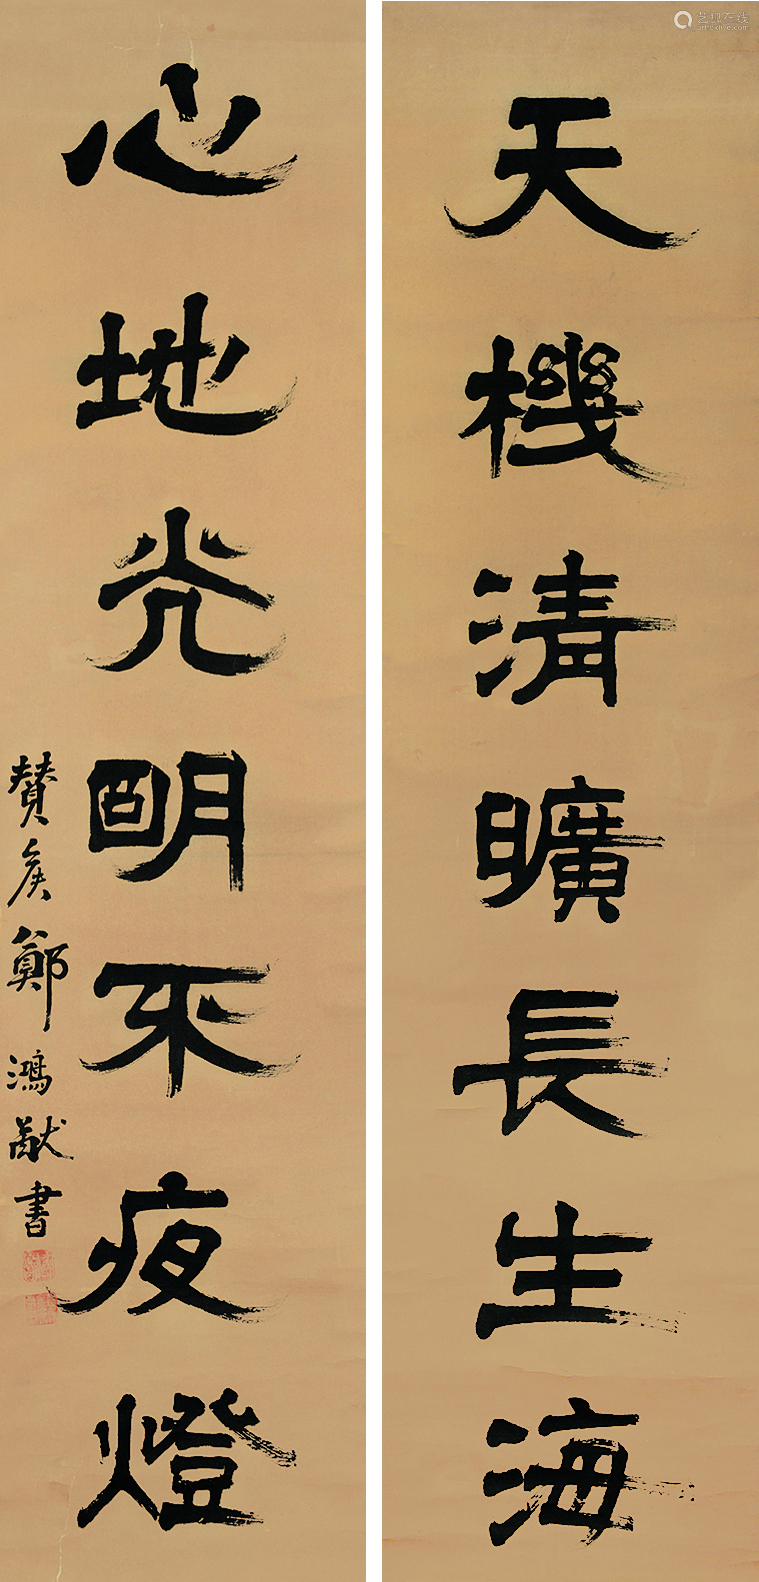 天機清曠長生海
心地光明不夜燈
贊侯鄭鴻猷書